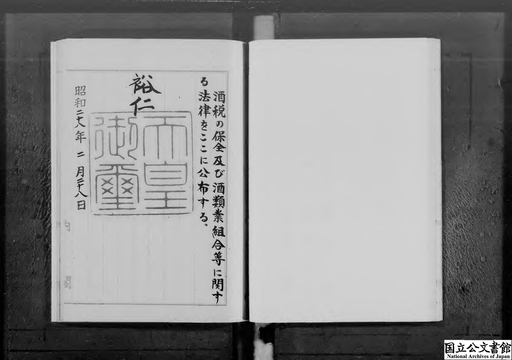 酒税の保全及び酒類業組合等に関す
る法律をここに公布する。
裕仁
天皇
御璽
昭和二十八年二月二十八日
国立公文書館
National Archives of Japan